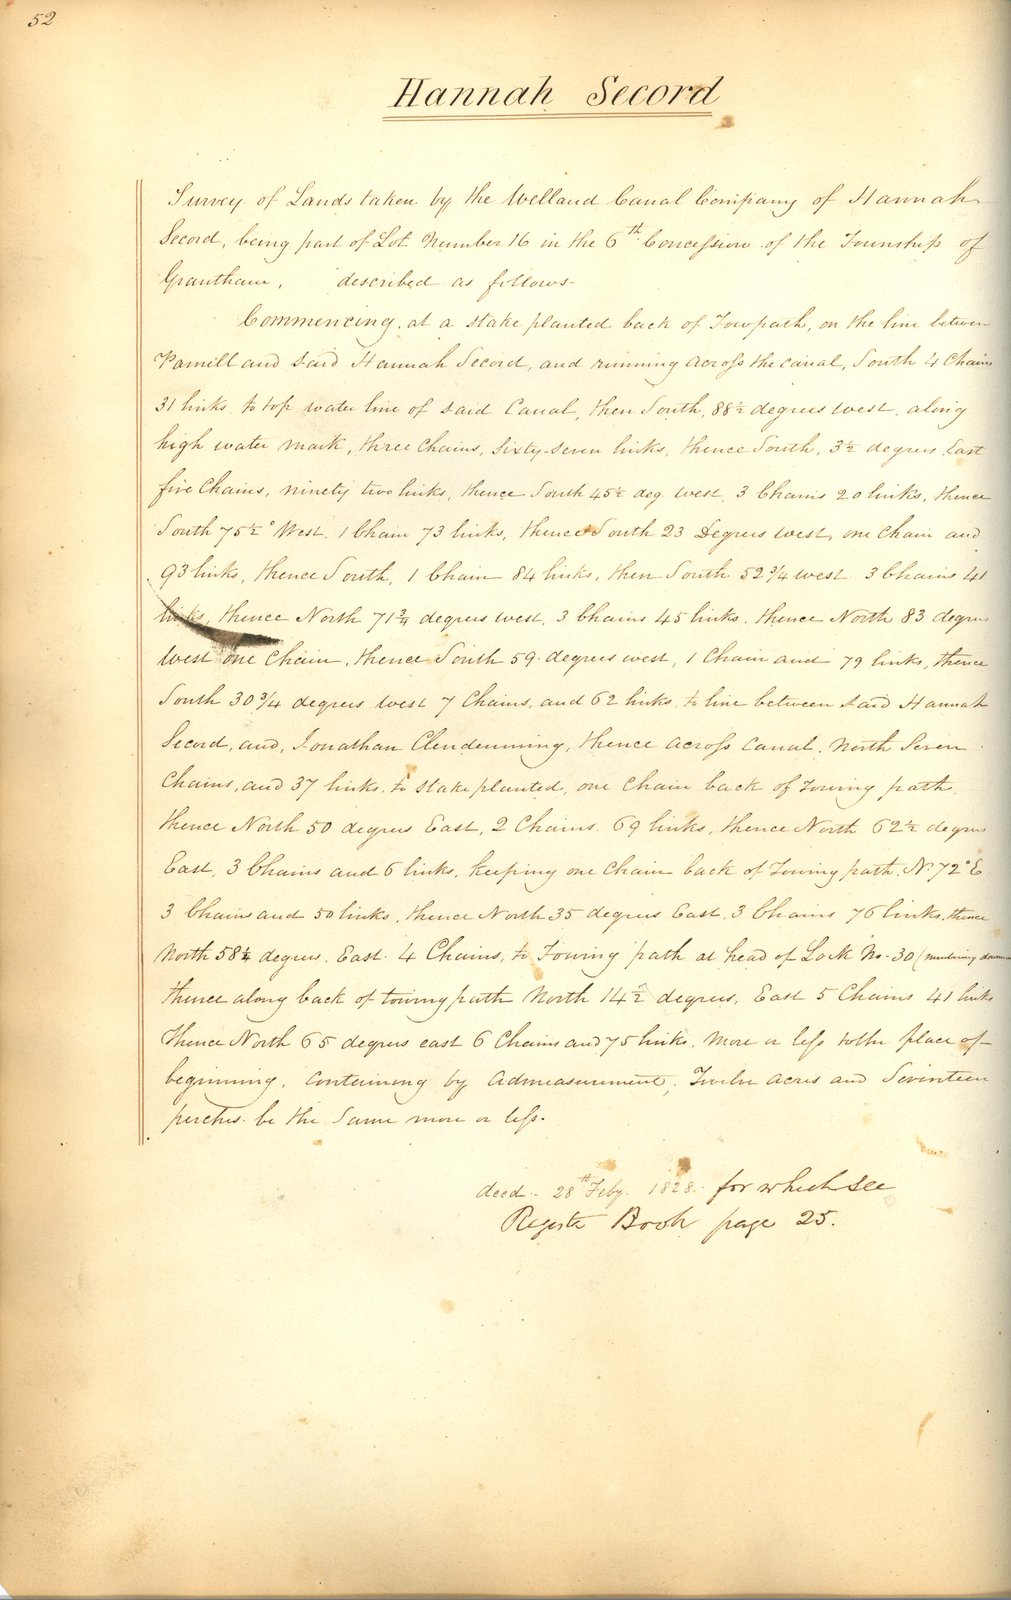 52
Hannah Secord
Survey of Lands taken by the Welland Canal Company of Hannah
Secord, being part of Lot Number 16 in the 6th Concession of the Township of
Grantham, described as follows
Commencing, at a stake planted back of Towpath, on the line between
and said Hannah Secord, and running across the canal, South 4 Chains
31 links, to top water line of said Canal, then South, 88½ degrees west, along
high water mark, three Chains, sixty-seven links, thence South, 3½ degrees East
five Chains, ninety two links, thence South 45½ deg west, 3 Chains 20 links, thence
South 75½° West. 1 Chain 73 links, thence South 23 Degrees west, one Chain and
93 links, thence South, 1 Chain 84 links, then South 52¾ west 3 Chains 41
links, thence North 71¾ degrees west, 3 Chains 45 links, thence North 83 degrees
West one Chain, thence South 59 degrees west, 1 Chain and 79 links, thence
South 30¾ degrees west 7 Chains, and 62 links, to line between said Hannah
Secord, and, Jonathan Clendenning, thence across canal, North Seven
Chains, and 37 links, to stake planted, one Chain back of Towing path,
thence North 50 degrees East, 2 Chains. 69 links, thence North 62½ degrees
East, 3 Chains and 6 links, keeping one Chain back of Towing path, N. 72° E
3 Chains and 50 links, thence North 35 degrees East. 3 Chains 76 links, thence
North 58¼ degrees, East. 4 Chains, to Towing path at head of Lock No. 30
thence along back of towing path North 14½ degrees, East 5 Chains 41 links
thence North 65 degrees east 6 Chains and 75 links, more or less to the place of
beginning, containing by admeasurement, Twelve acres and Seventeen
perches be the same more or less.
deed - 28th Feby. 1828. for which see
Register Book page 25.